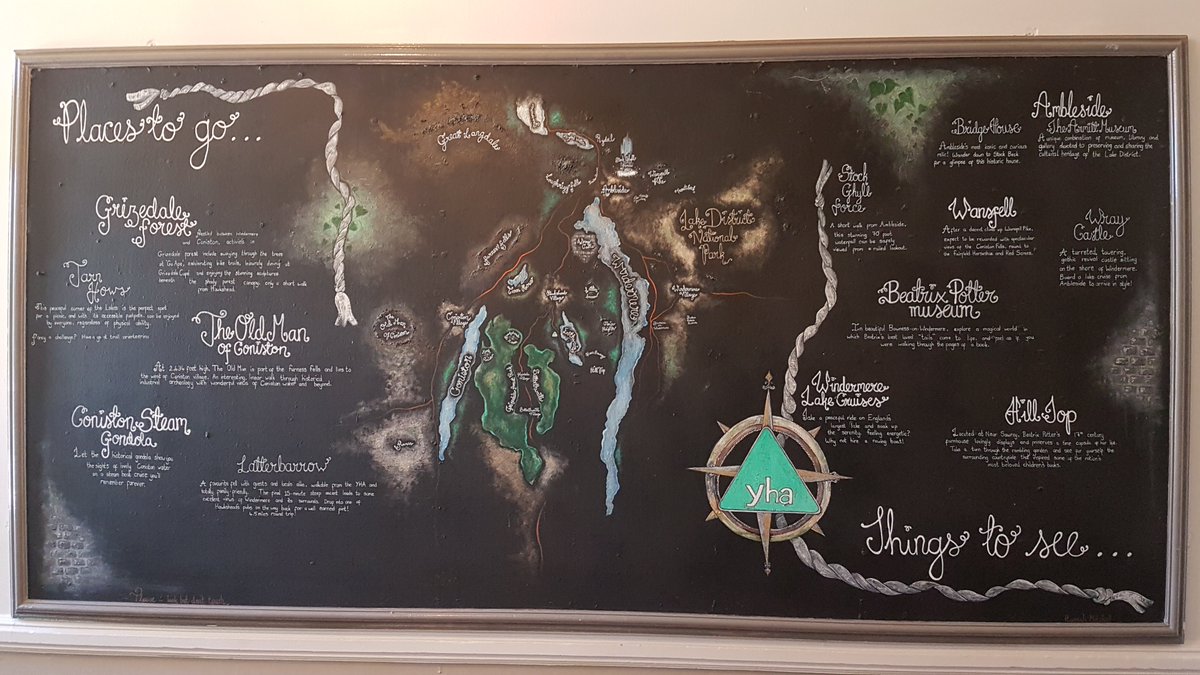 Places to go...
Grizedale
Forest
Nestled between Windermere
and Coniston, activities in
Grizedale Forest include swinging through the trees
at Go Ape, exhilarating bike trails, leisurely dining at
Grizedale Café, and enjoying the stunning sculptures
beneath the shady forest canopy, only a short walk
from Hawkshead.
Tarn
Hows
This peaceful corner of the Lakes is the perfect spot
for a picnic, and with its accessible footpath, can be enjoyed
by everyone, regardless of physical ability.
Fancy a challenge? Have a go at trail
The Old Man
of Coniston
At 2,634 foot high, The Old Man is part of the Furness Fells and lies to
the west of Coniston village. An interesting linear walk through historical
industrial archeology with wonderful views of Coniston water and beyond.
Coniston Steam
Gondola
Let the historical gondola show you
the sights of lovely Coniston water
on a steam boat cruise you'll
remember forever.
Latterbarrow
A favourite fell with guests and locals alike, walkable from the YHA and
totally family-friendly. The final 15-minute steep ascent leads to some
excellent views of Windermere and its surrounds. Drop into one of
Hawksheads pubs on the way back for a well earned pint!
6.5 miles round trip!
Please - look but don't touch
Great Langdale
Rydal
Ambleside
Lake District
National
Park
Windermere
Windermere
Village
The Old Man
of Coniston
Coniston
Village
Coniston
Stock
Ghyll
Force
A short walk from Ambleside,
this stunning 70 foot
waterfall can be safely
viewed from a railed lookout.
Bridge House
Ambleside's most iconic and curious
relic! Wander down to Stock Beck
for a glimpse of this historic house.
Ambleside
The Armitt Museum
A unique combination of museum, library and
gallery devoted to preserving and sharing the
cultural heritage of the Lake District.
Wansfell
After a decent climb up Wansfell Pike,
expect to be rewarded with spectacular
views of the Coniston Fells, round to
the Fairfield Horseshoe and Red Screes.
Wray
Castle
A turreted, towering,
gothic revival castle sitting
on the shore of Windermere.
Board a lake cruise from
Ambleside to arrive in style!
Beatrix Potter
museum
In beautiful Bowness-on-Windermere, explore a magical world in
which Beatrix's best loved 'tails' come to life, and feel as if you
were walking through the pages of a book.
Windermere
Lake Cruises
Take a peaceful ride on England's
largest lake and soak up
the serenity. Feeling energetic?
Why not hire a rowing boat!
Hill Top
Located at Near Sawrey, Beatrix Potter's 17th century
farmhouse lovingly displays and preserves a time capsule of her life.
Take a turn through the rambling garden and see for yourself the
surrounding countryside that inspired some of the nation's
most beloved children's books.
yha
Things to see...